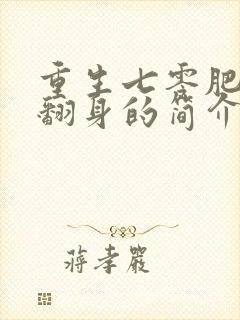 重生七零肥
翻身的简介
蒋孝严